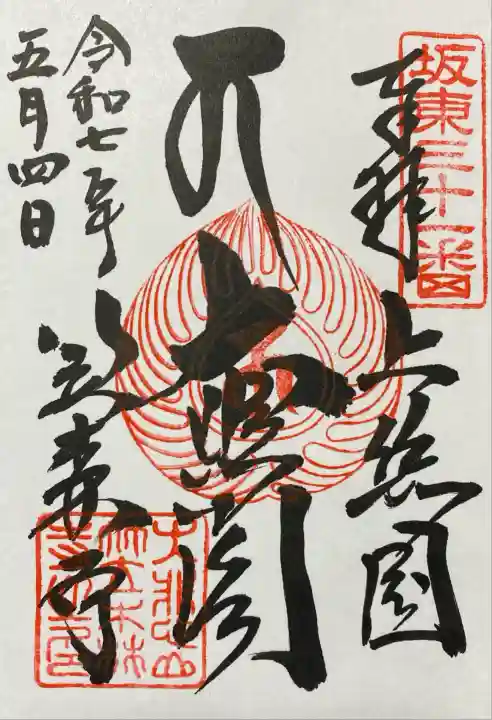 坂東三十一番
奉拝
上総國
大悲閣
令和七年
五月四日
笠森寺